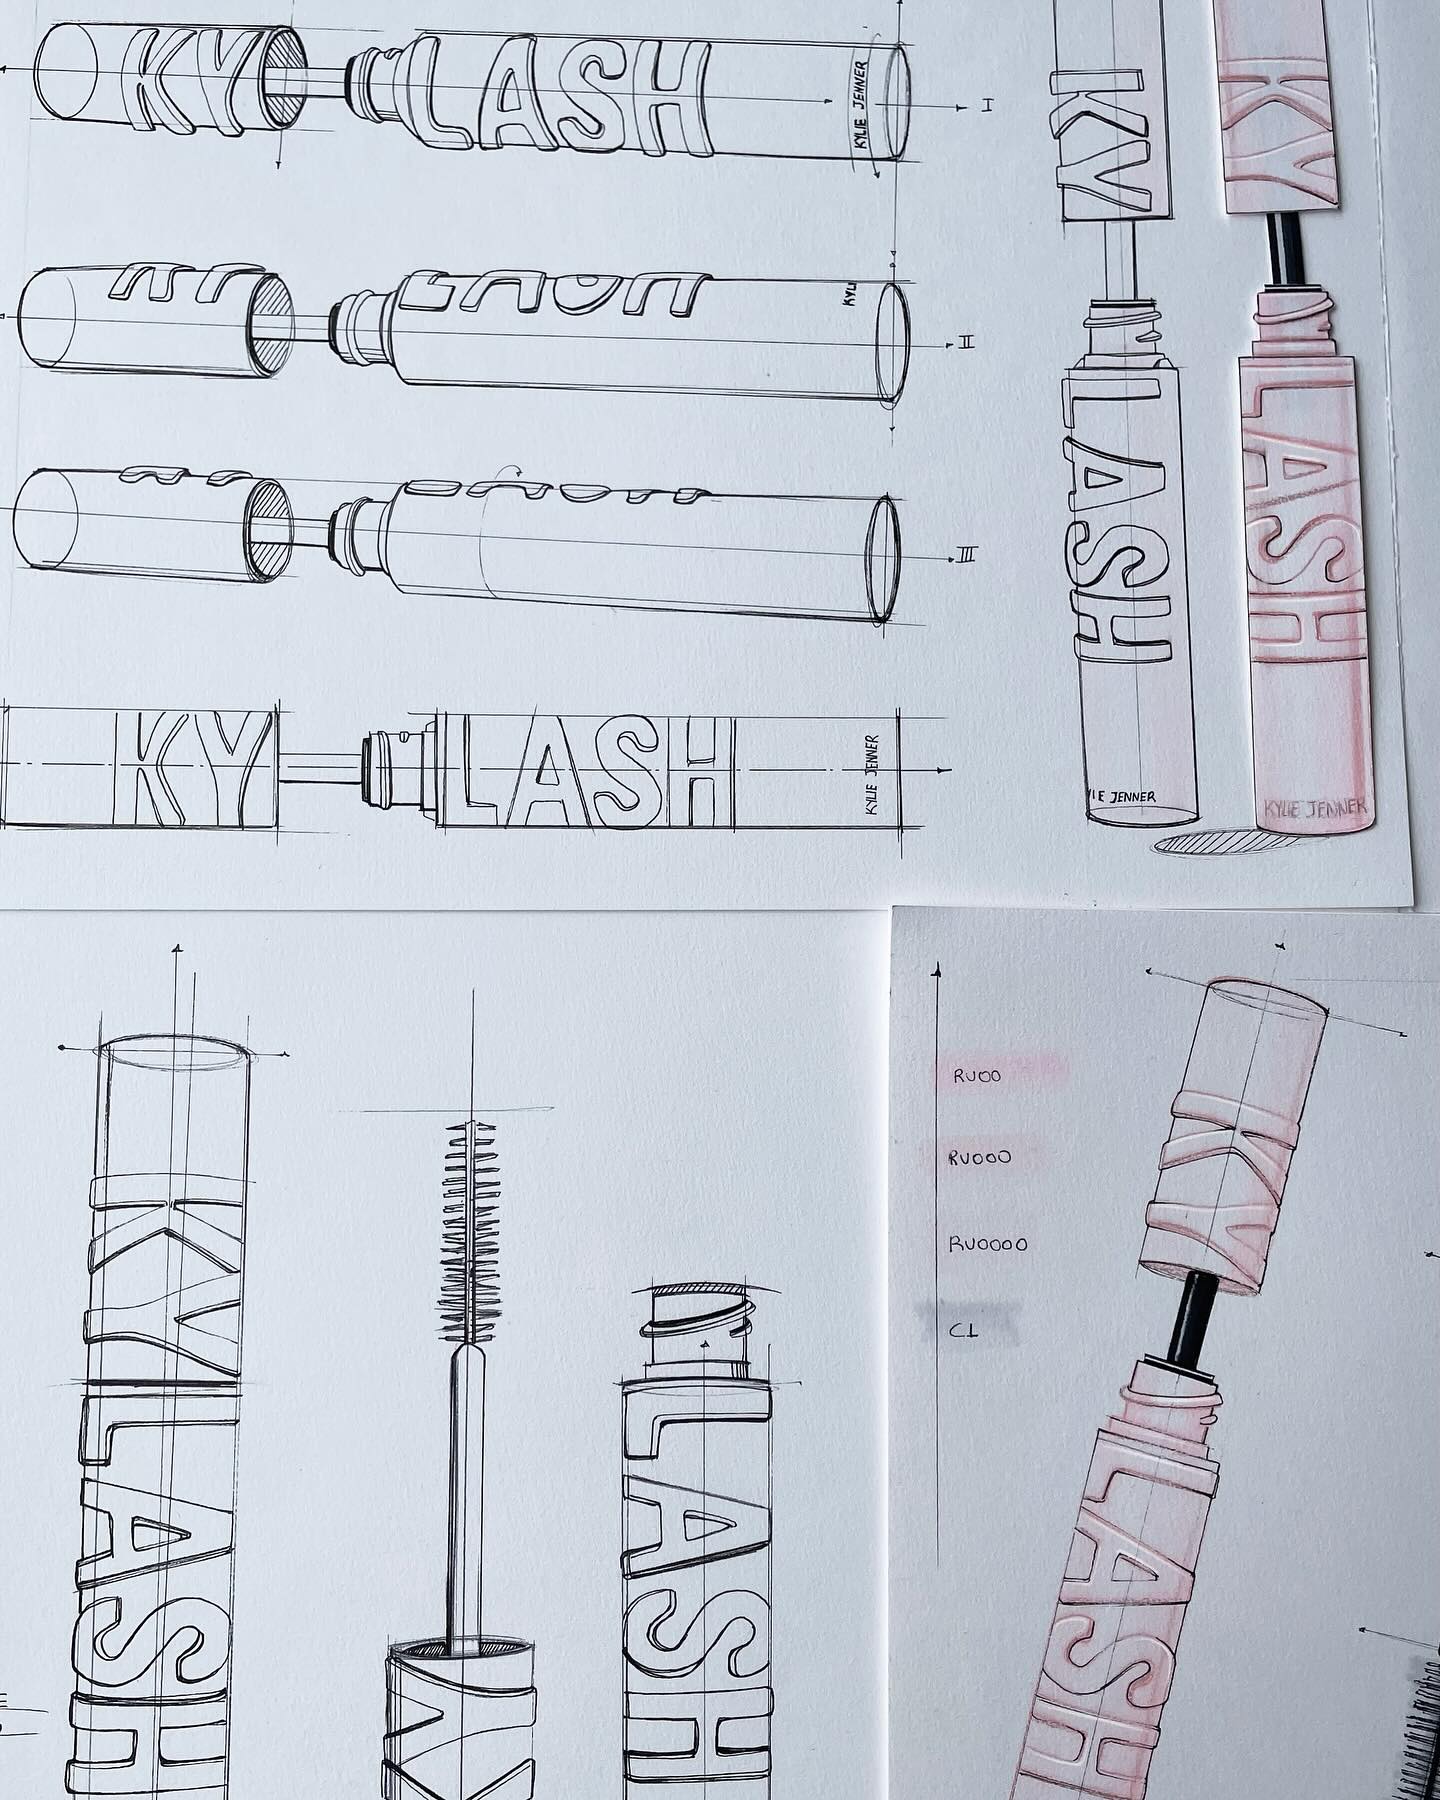 KY LASH KYLIE JENNER I
KYL II
III
KY LASH KYLIE JENNER
KY
LASH
IE JENNER
KY
LASH
KYLIE JENNER
KY
LASH
LASH
RV00
RV000
RV0000
C1
KY
LASH